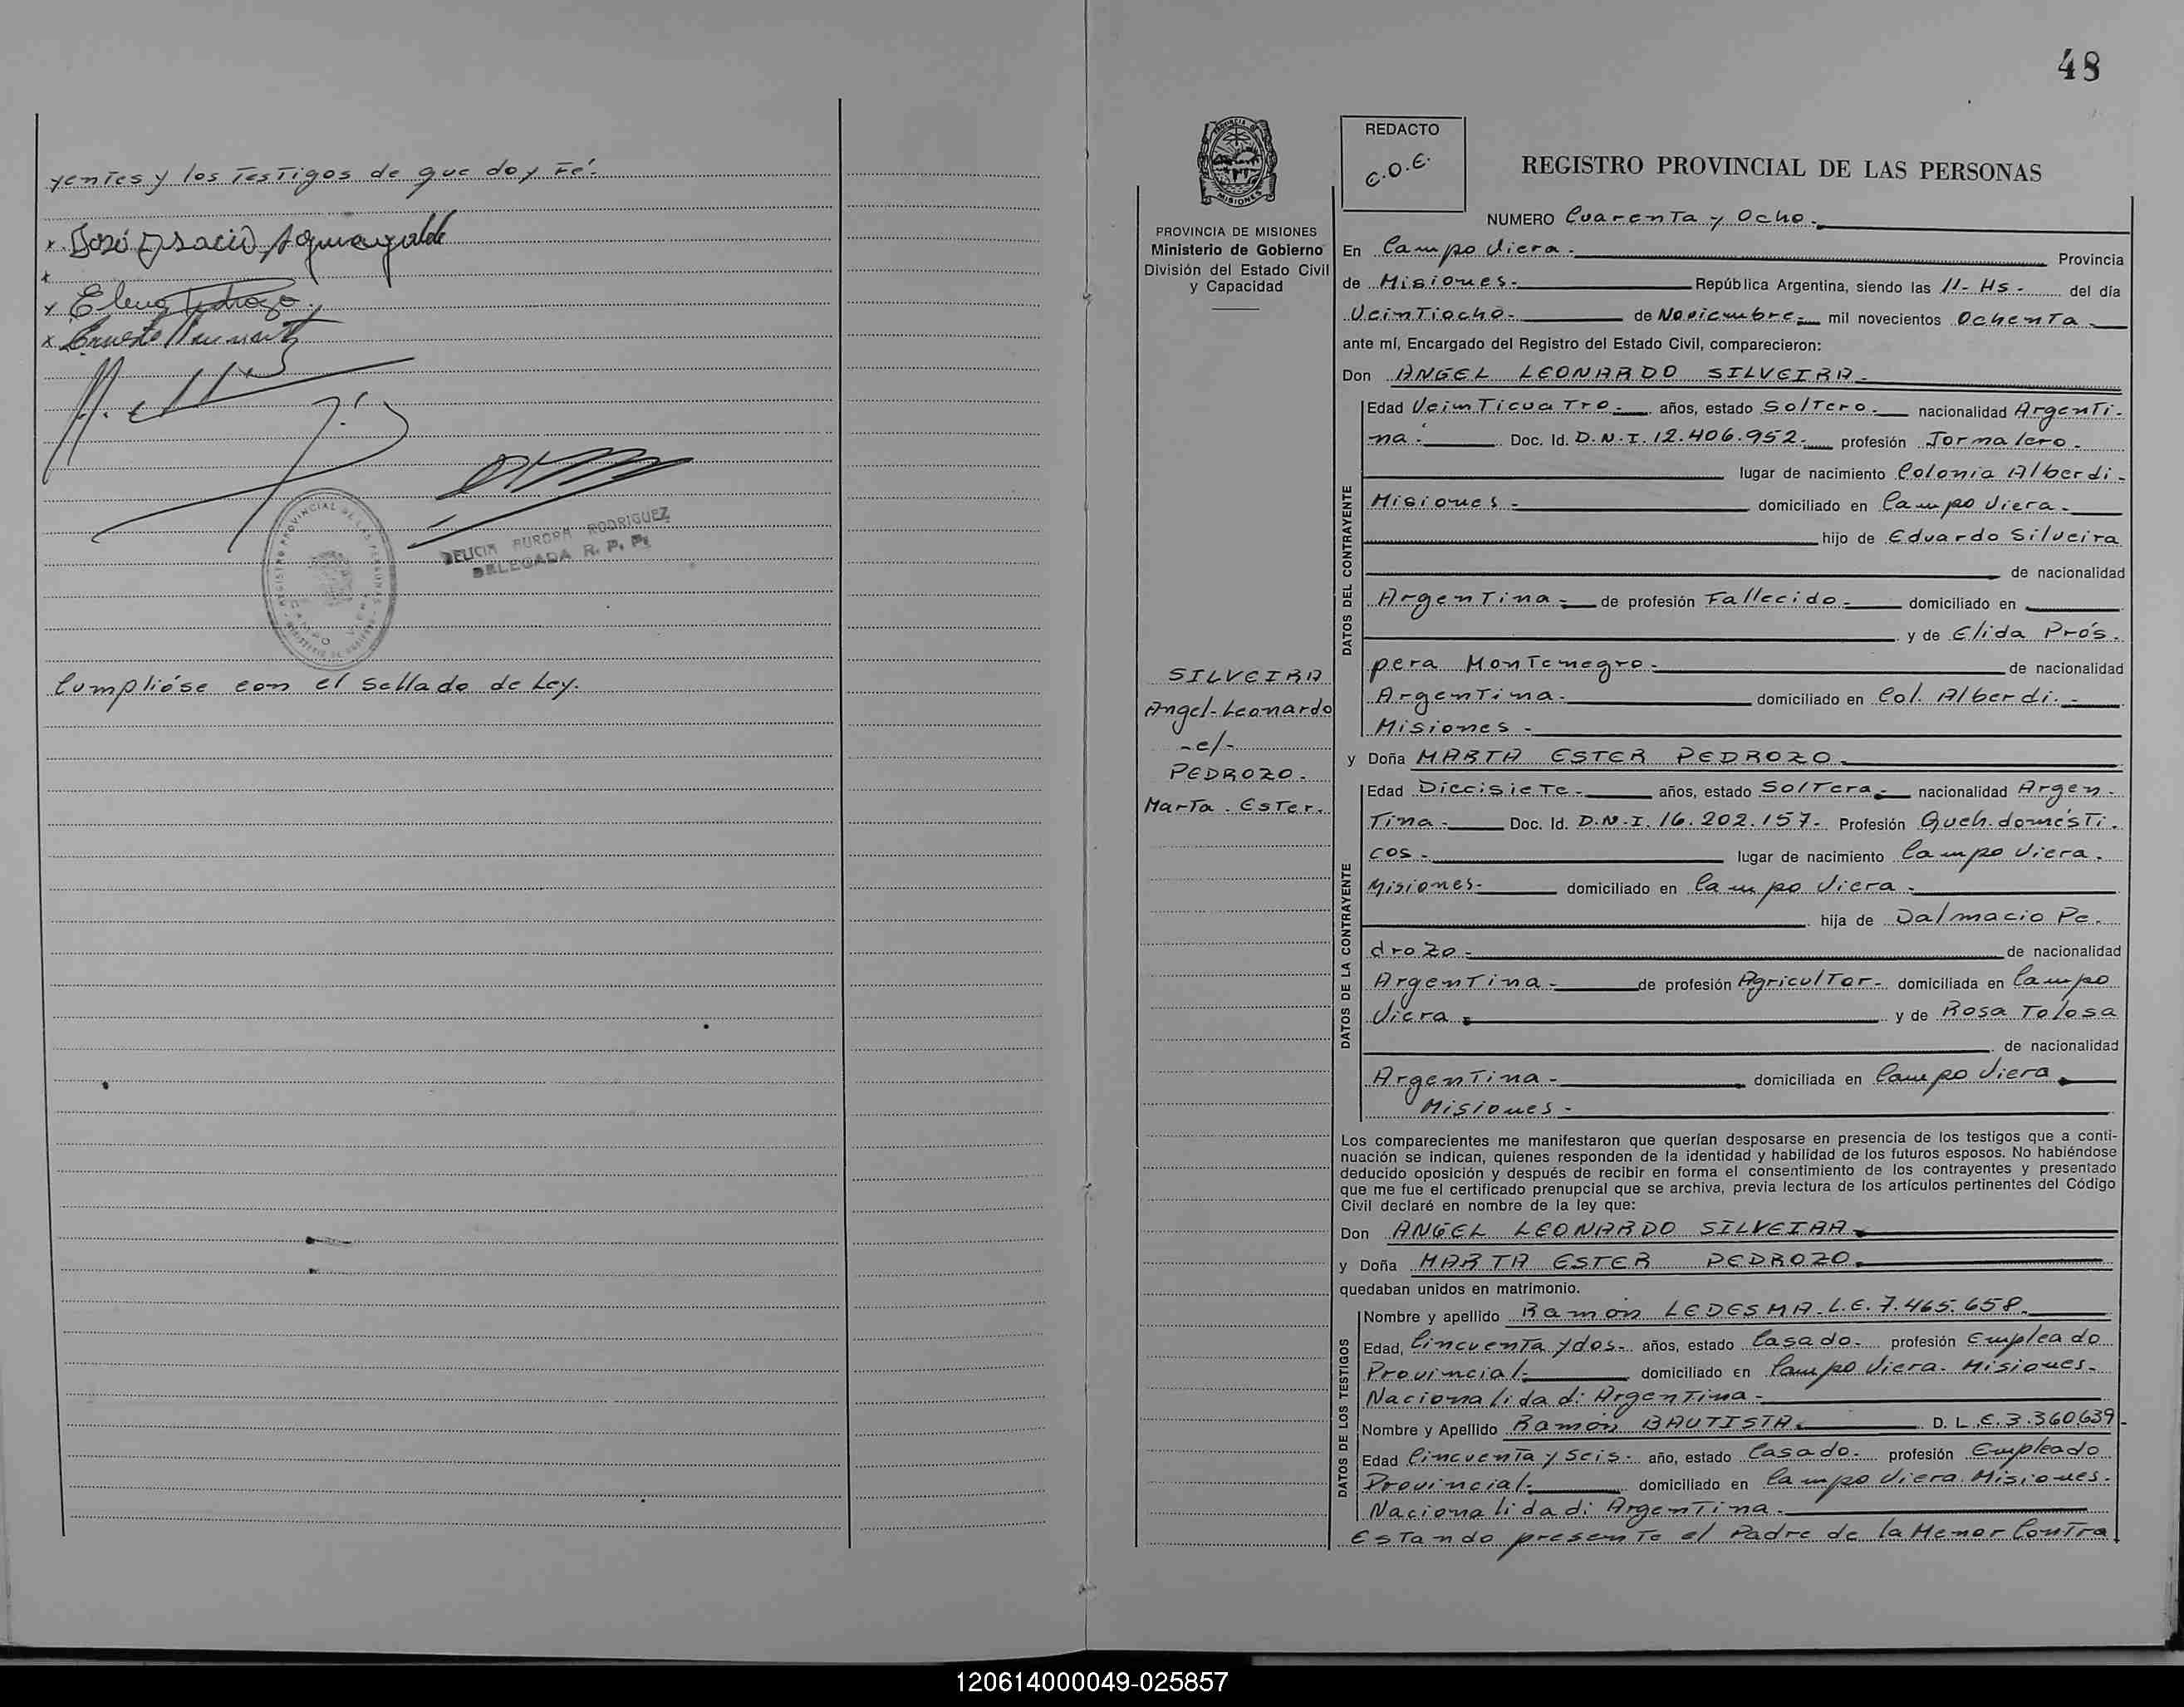 yentes y los Testigos de que doy Fé.
x
x Elena Pedrozo
x Ernesto
DELICIA AURORA RODRIGUEZ
DELEGADA R. P. P.
REGISTRO PROVINCIAL DE LAS PERSONAS
Cumplióse con el Sellado de Ley.
48
PROVINCIA DE MISIONES
Ministerio de Gobierno
División del Estado Civil
y Capacidad
SILVEIRA
Angel-Leonardo
-c/-
PEDROZO.
Marta. Ester.
REDACTO
C.O.E.
REGISTRO PROVINCIAL DE LAS PERSONAS
NUMERO Cuarenta y Ocho.
En Campo Viera.- Provincia
de Misiones.- República Argentina, siendo las 11- Hs - del día
Veintiocho.- de Noviembre.- mil novecientos Ochenta.-
ante mí, Encargado del Registro del Estado Civil, comparecieron:
Don ANGEL LEONARDO SILVEIRA.-
DATOS DEL CONTRAYENTE
Edad Veinticuatro.- años, estado Soltero.- nacionalidad Argenti-
na.- Doc. Id. D.N.I. 12.406.952.- profesión Jornalero.-
lugar de nacimiento Colonia Alberdi-
Misiones.- domiciliado en Campo Viera.-
hijo de Eduardo Silveira
de nacionalidad
Argentina.- de profesión Fallecido.- domiciliado en
y de Elida Prós-
pera Montenegro.- de nacionalidad
Argentina.- domiciliado en Col. Alberdi.-
Misiones.-
y Doña MARTA ESTER PEDROZO.-
DATOS DE LA CONTRAYENTE
Edad Diecisiete.- años, estado Soltera.- nacionalidad Argen-
tina.- Doc. Id. D.N.I. 16.202.157.- Profesión Queh. domésti-
cos.- lugar de nacimiento Campo Viera.
Misiones.- domiciliado en Campo Viera.-
hija de Dalmacio Pe-
drozo.- de nacionalidad
Argentina.- de profesión Agricultor.- domiciliada en Campo
Viera.- y de Rosa Tolosa
de nacionalidad
Argentina.- domiciliada en Campo Viera
Misiones.-
Los comparecientes me manifestaron que querían desposarse en presencia de los testigos que a conti-
nuación se indican, quienes responden de la identidad y habilidad de los futuros esposos. No habiéndose
deducido oposición y después de recibir en forma el consentimiento de los contrayentes y presentado
que me fue el certificado prenupcial que se archiva, previa lectura de los artículos pertinentes del Código
Civil declaré en nombre de la ley que:
Don ANGEL LEONARDO SILVEIRA.
y Doña MARTA ESTER PEDROZO.
quedaban unidos en matrimonio.
DATOS DE LOS TESTIGOS
Nombre y apellido Ramón LEDESMA-L.E. 7.465.658.
Edad, Cincuenta y dos.- años, estado Casado.- profesión Empleado
Provincial.- domiciliado en Campo Viera. Misiones.-
Nacionalidad: Argentina.-
Nombre y Apellido Ramón BAUTISTA. D. L.E. 3.360.639.-
Edad Cincuenta y Seis.- año, estado Casado.- profesión Empleado
Provincial.- domiciliado en Campo Viera. Misiones.-
Nacionalidad: Argentina.-
Estando presente el Padre de la Menor Contra
120614000049-025857